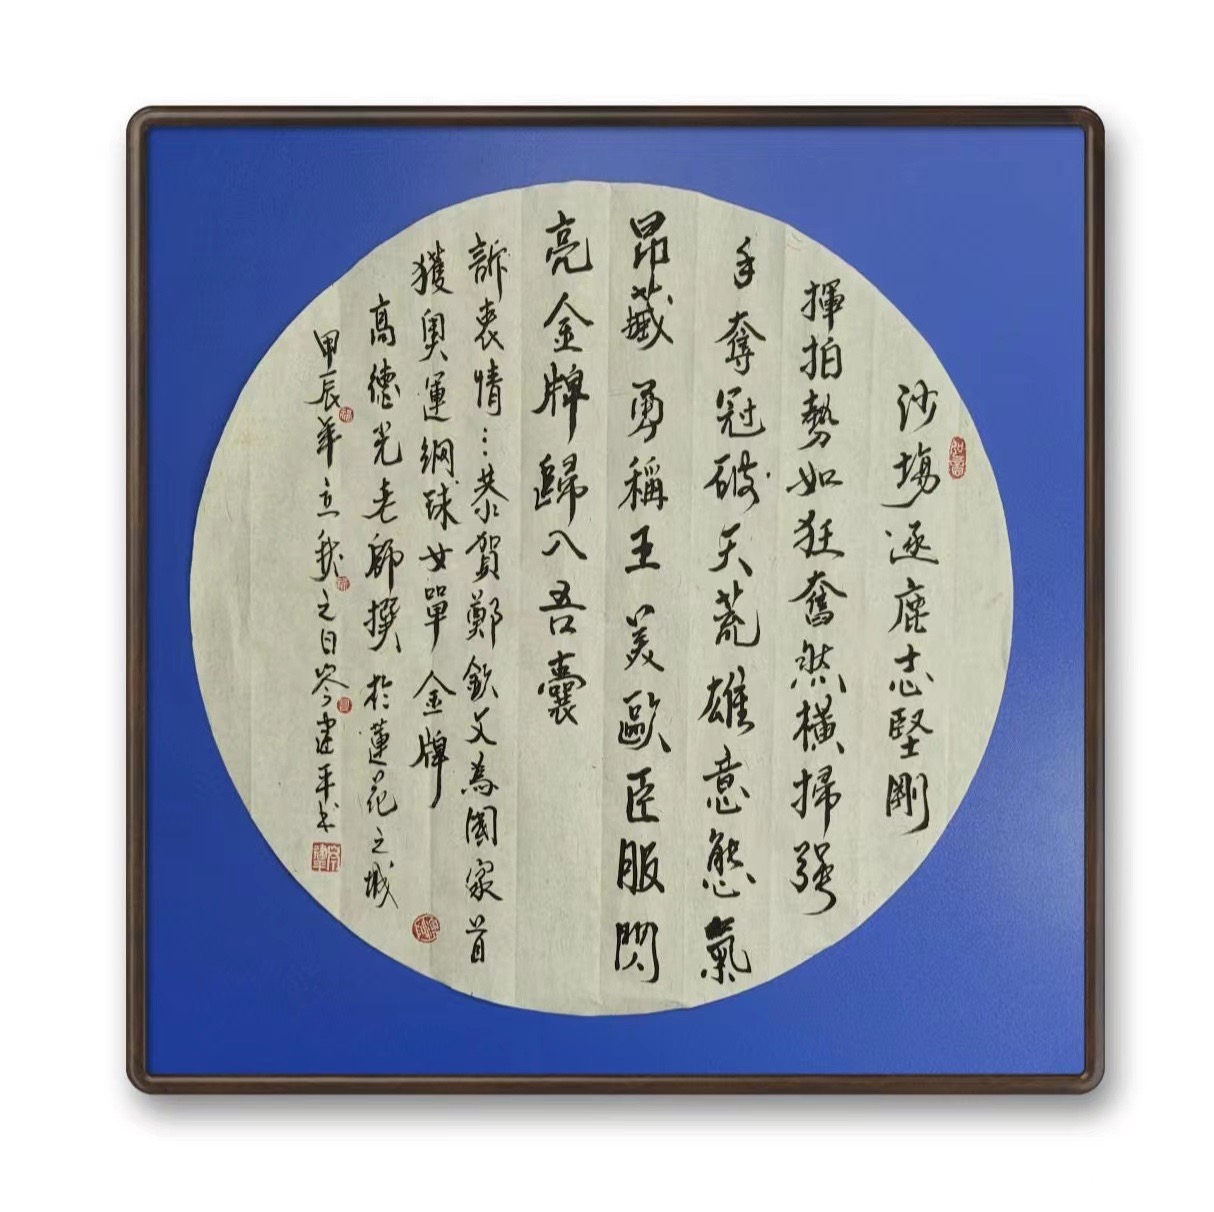 沙塲逐鹿志堅剛
揮拍勢如狂奮然橫掃强
手奪冠破天荒雄意態氣
昂藏勇稱王美歐臣服閃
亮金牌歸入吾囊
訴衷情：恭賀鄭欽文為國家首
獲奧運網球女單金牌
高德光老師撰於蓮花之城
甲辰年立秋之日岑建平书